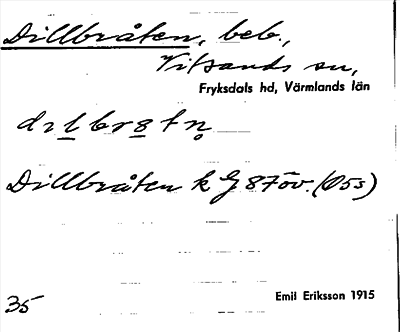 Dillbråten, beb.,
Vitsands sn,
Fryksdals hd, Värmlands län
Dillbråten k G 87öv. (Ö5s)
35
Emil Eriksson 1915